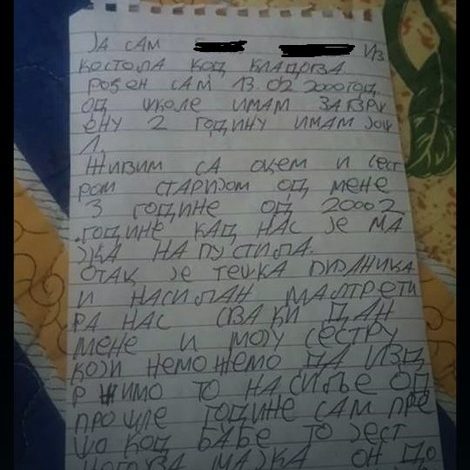 ЈА САМ ИЗ
КОСТОЛА КОД КЛАДОВА
РОЂЕН САМ 13.02.2000 ГОД.
ОД ШКОЛЕ ИМАМ ЗАВРШ
ЕНУ 2 ГОДИНУ ИМАМ ЈОШ
1.
ЖИВИМ СА ОЦЕМ И СЕСТ
РОМ СТАРИЈОМ ОД МЕНЕ
3 ГОДИНЕ ОД 20002
ГОДИНЕ КАД НАС ЈЕ МА
ЈКА НАПУСТИЛА.
ОТАЦ ЈЕ ТЕШКА ПИЈАНИЧА
И НАСИЛАН МАЛТРЕТИ
РА НАС СВАКИ ДАН
МЕНЕ И МОЈУ СЕСТРУ
КОЈИ НЕМОЖЕМО ДА ИЗД
РЖИМО ТО НАСИЉЕ ОД
ПРОШЛЕ ГОДИНЕ САМ ПРЕ
ШО КОД БАБЕ ТО ЈЕСТ
ЊЕГОВА МАЈКА ОН ДО